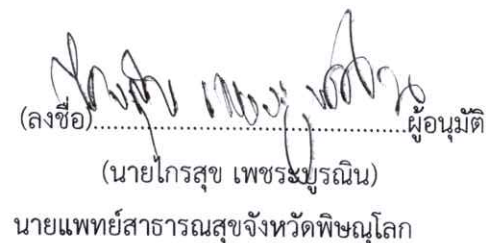 (ลงชื่อ)..................................................ผู้อนุมัติ
(นายไกรสุข เพชระบูรณิน)
นายแพทย์สาธารณสุขจังหวัดพิษณุโลก